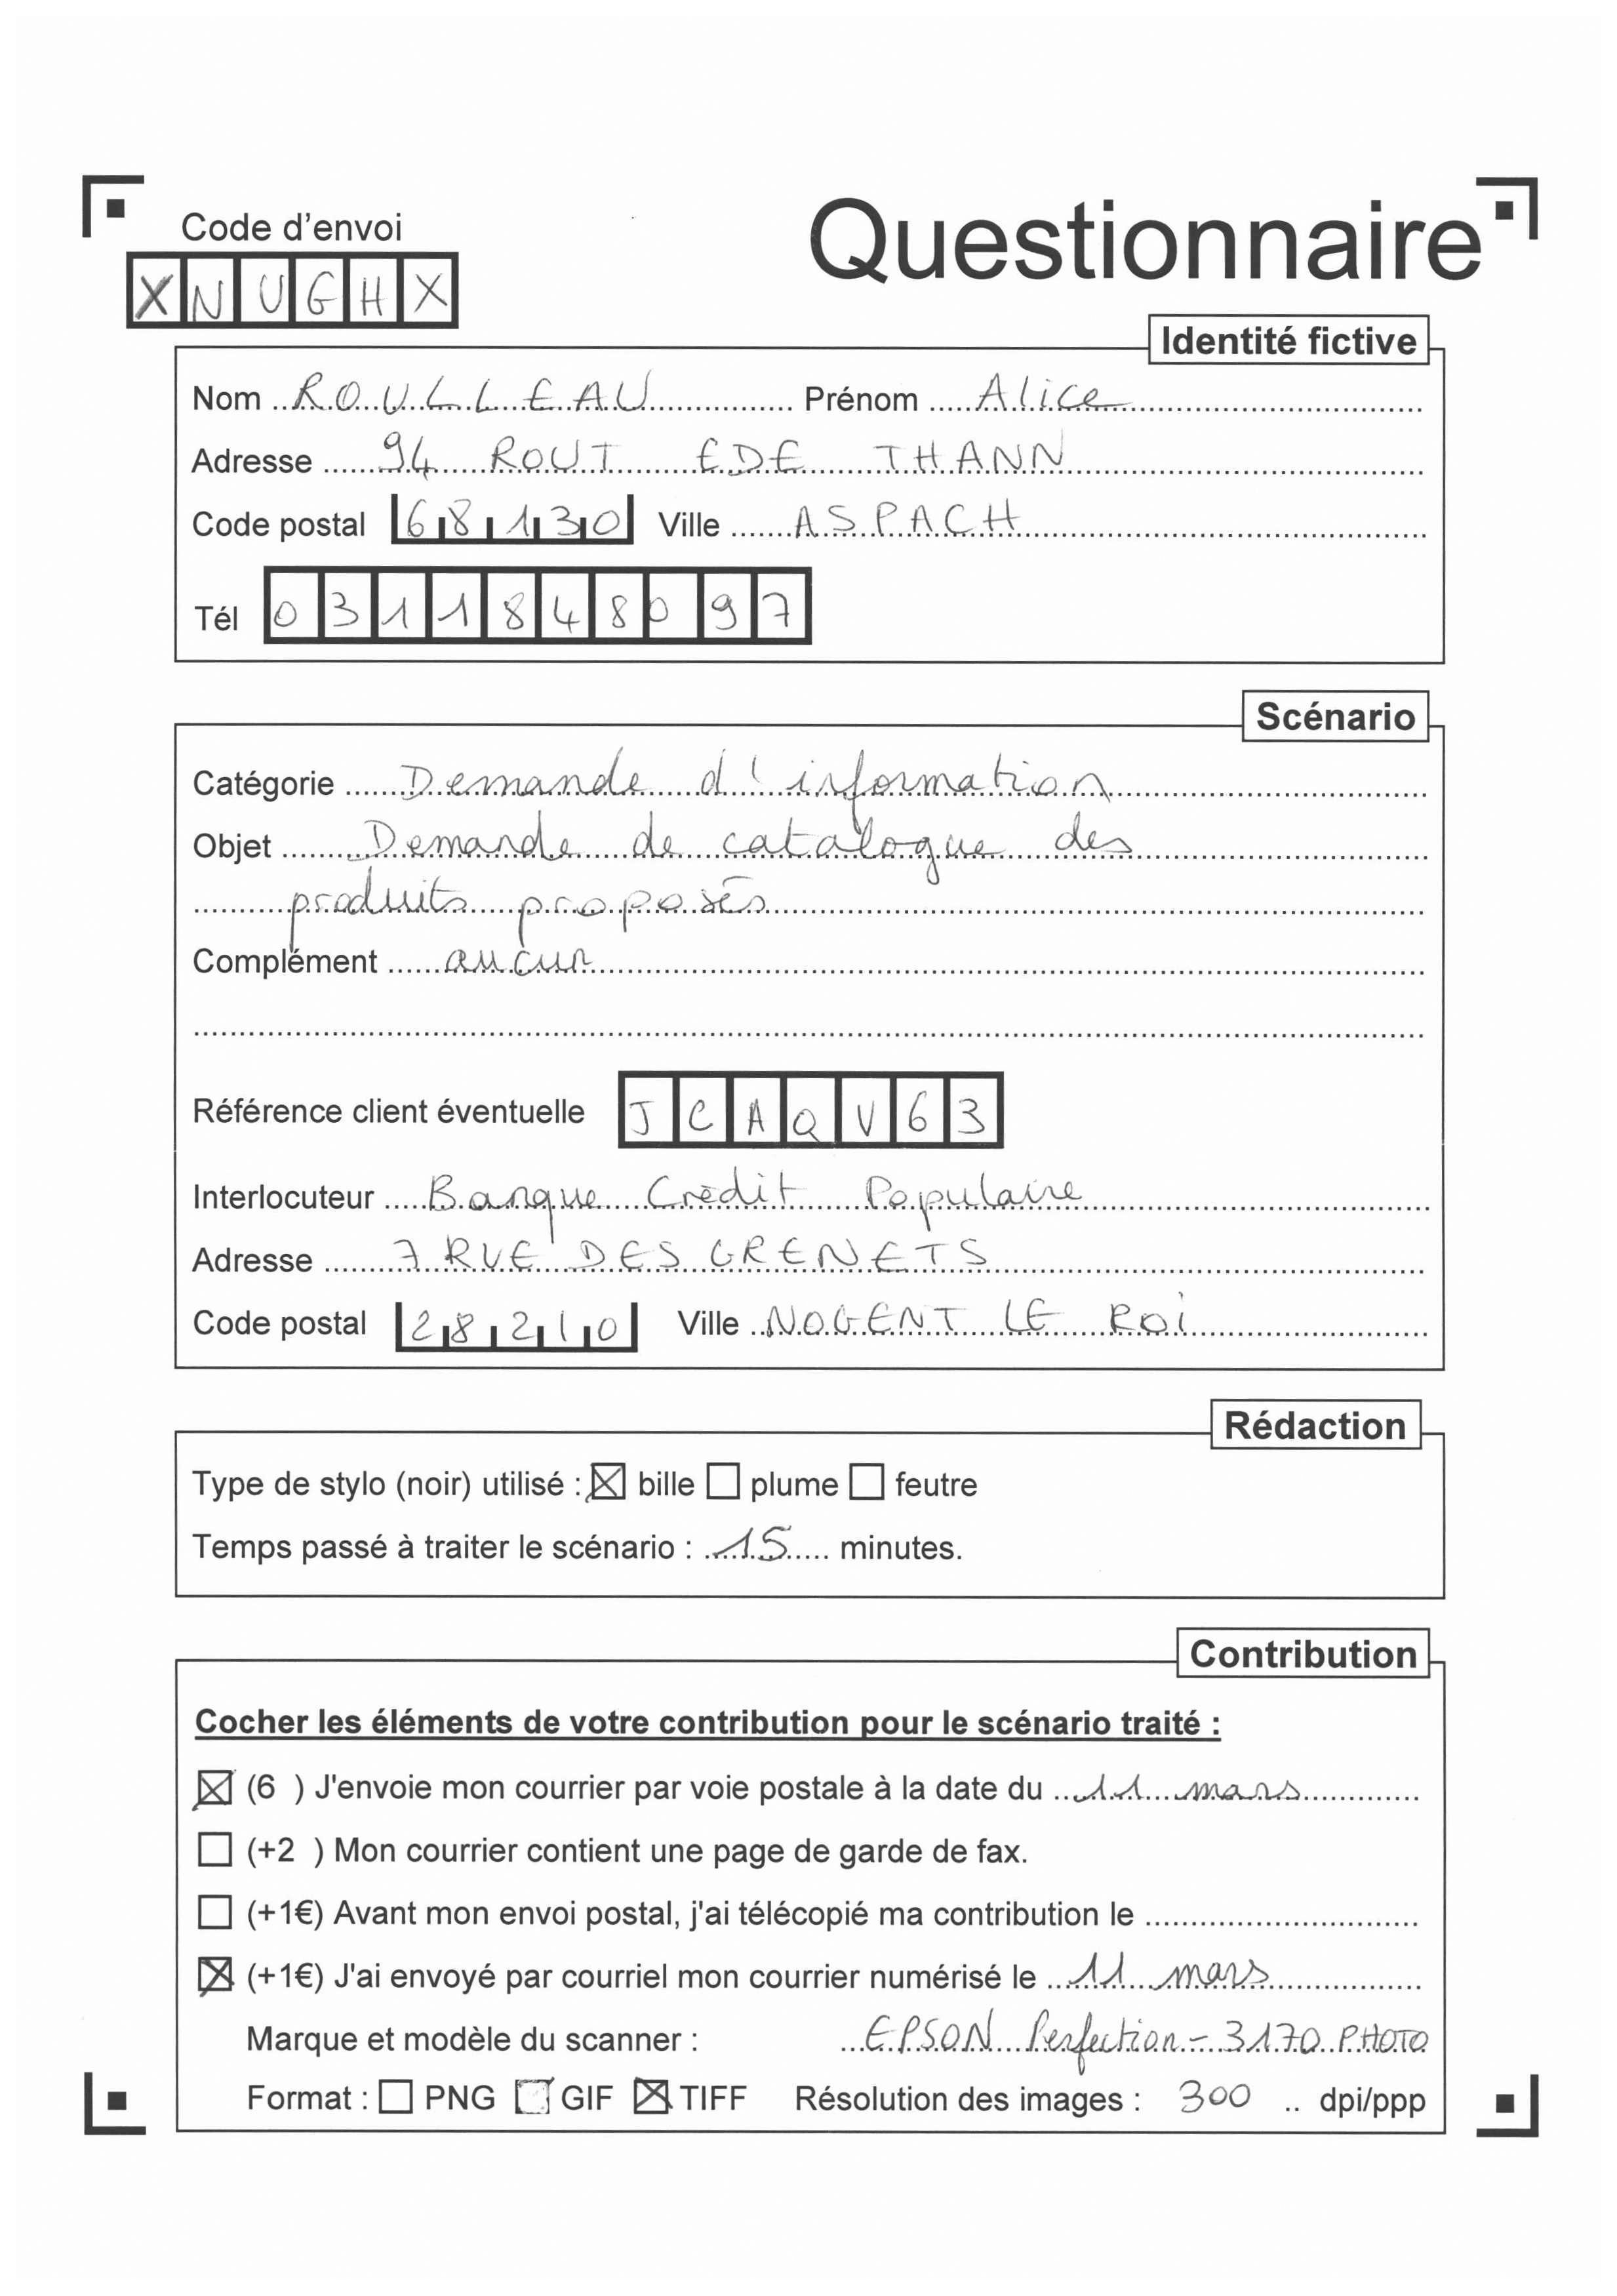 Code d'envoi
Questionnaire
XNUGHX
Identité fictive
Nom ROULLEAU Prénom Alice
Adresse 94 ROUT EDE THANN
Code postal 68130 Ville ASPACH
Tél 0311848097
Scénario
Catégorie Demande d'information
Objet Demande de catalogue des
produits proposés
Complément aucun
Référence client éventuelle JCAQV63
Interlocuteur Banque Crédit Populaire
Adresse 7 RUE DES GRENETS
Code postal 28210 Ville NOGENT LE ROi
Rédaction
Type de stylo (noir) utilisé : ☒ bille ☐ plume ☐ feutre
Temps passé à traiter le scénario : 15 minutes.
Contribution
Cocher les éléments de votre contribution pour le scénario traité :
☒ (6 ) J'envoie mon courrier par voie postale à la date du 11 mars
☐ (+2 ) Mon courrier contient une page de garde de fax.
☐ (+1€) Avant mon envoi postal, j'ai télécopié ma contribution le
☒ (+1€) J'ai envoyé par courriel mon courrier numérisé le 11 mars
Marque et modèle du scanner : EPSON Perfection - 3170 PHOTO
Format : ☐ PNG ☐ GIF ☒ TIFF Résolution des images : 300 .. dpi/ppp